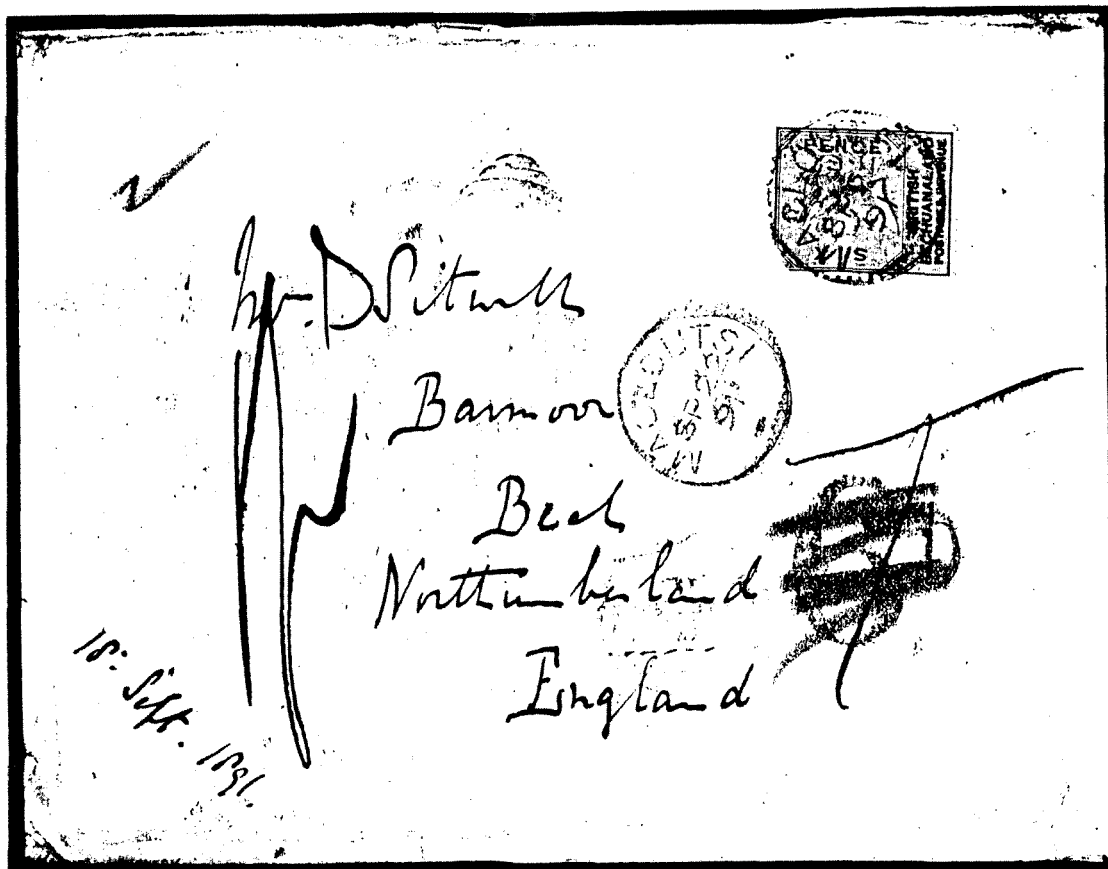 PENCE
BRITISH
BECHUANALAND
POSTAGE & REVENUE
MACLOUTSI
SP 25
91
Mr. D Sitwell
Barmoor
Beal
Northumberland
England
18. Sept. 1891.